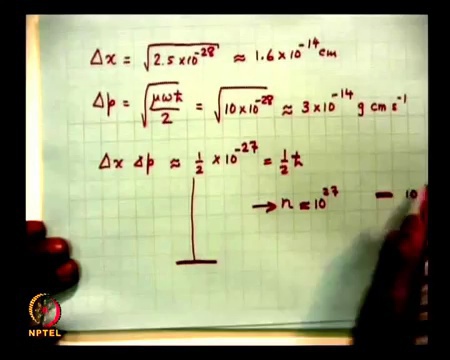 Δx = √2.5×10⁻²⁸ ≈ 1.6×10⁻¹⁴ cm
Δp = √(μωħ/2) = √10×10⁻²⁸ ≈ 3×10⁻¹⁴ g cm s⁻¹
Δx Δp ≈ ½ × 10⁻²⁷ = ½ ħ
→ n ≈ 10³⁷ — 10
NPTEL